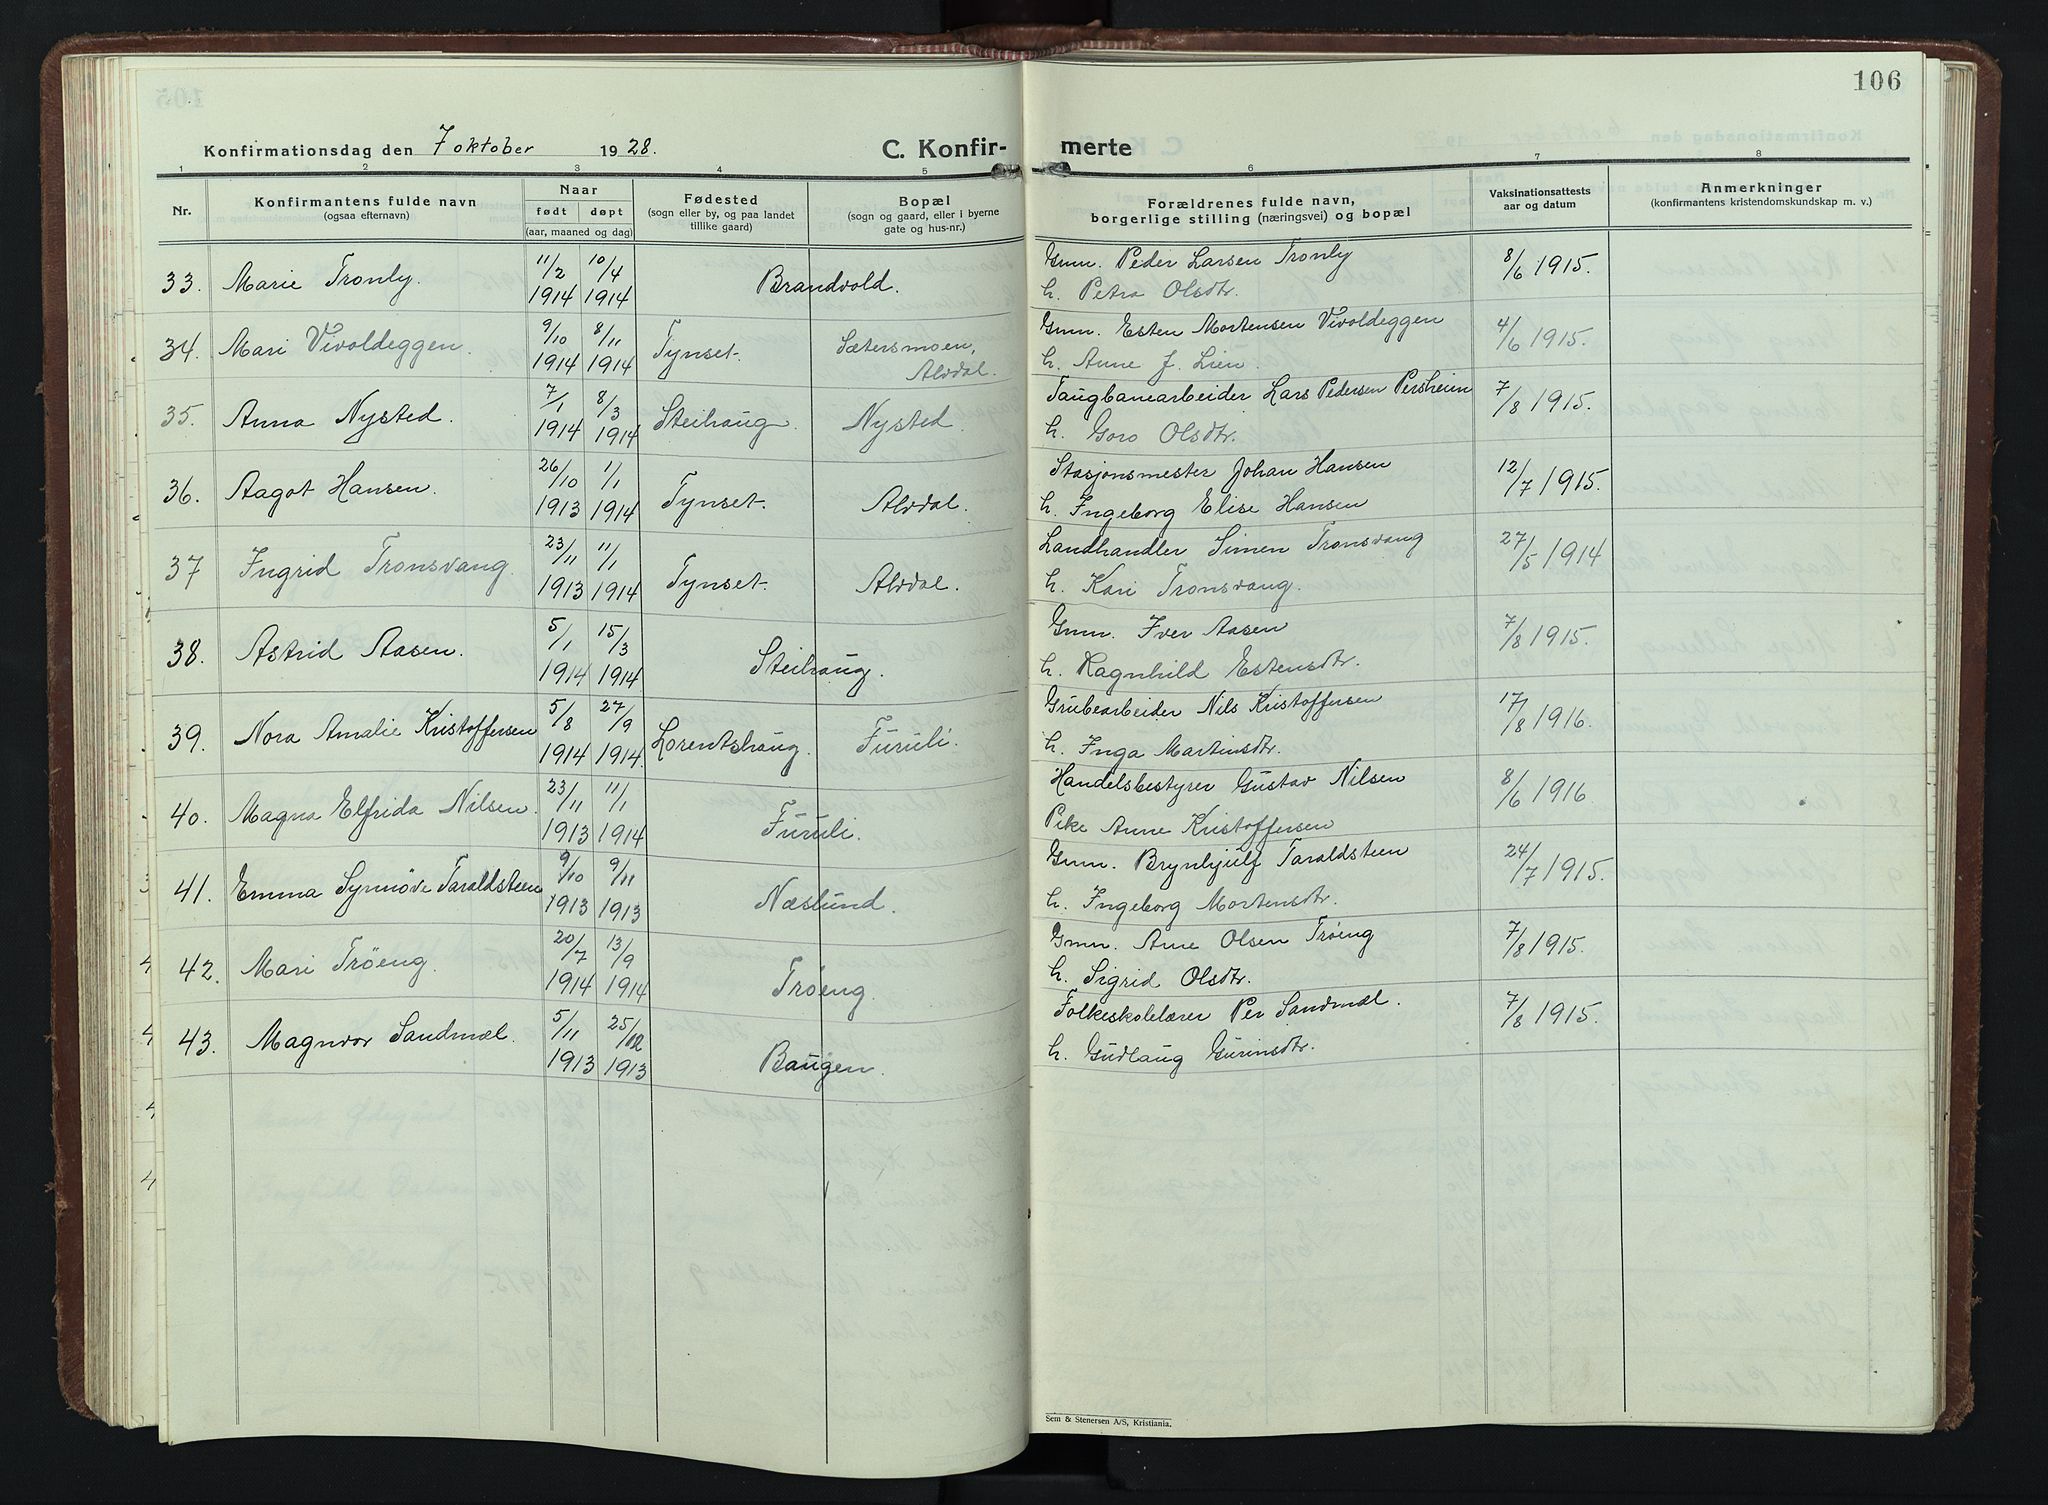 106
Konfirmationsdag den 7 oktober 1928.
C. Konfir-
merte
1 2 3 4 5 6 7 8
Nr.
Konfirmantens fulde navn
(ogsaa efternavn)
Naar
født døpt
(aar, maaned og dag)
Fødested
(sogn eller by, og paa landet
tillike gaard)
Bopæl
(sogn og gaard, eller i byerne
gate og hus-nr.)
Forældrenes fulde navn,
borgerlige stilling (næringsvei) og bopæl
Vaksinationsattests
aar og datum
Anmerkninger
(konfirmantens kristendomskundskap m. v.)
11/2 10/4 Gmn. Peder Larsen Tronly
33. Marie Tronly. 1914 1914 Brandvold. h. Petra Olsdtr. 8/6 1915.
9/10 8/11 Gmn. Esten Mortensen Vivoldeggen
34. Mari Vivoldeggen. 1914 1914 Tynset. Sætersmoen, Alvdal. h. Anne J. Lien. 4/6 1915.
7/1 8/3 Taugbanearbeider Lars Pedersen Persheim
35. Anna Nysted. 1914 1914 Steihaug. Nysted. h. Goro Olsdtr. 7/8 1915.
26/10 1/1 Stasjonsmester Johan Hansen
36. Aagot Hansen. 1913 1914 Tynset. Alvdal. h. Ingeborg Elise Hansen 12/7 1915.
23/11 11/1 Landhandler Simen Tronsvang
37 Ingrid Tronsvang. 1913 1914 Tynset. Alvdal. h. Kari Tronsvang. 27/5 1914
5/1 15/3 Gmn. Iver Aasen
38. Astrid Aasen. 1914 1914 Steihaug. h. Ragnhild Estensdtr. 7/8 1915.
5/8 27/9 Grubearbeider Nils Kristoffersen
39. Nora Amalie Kristoffersen 1914 1914. Lorentshaug. Furuli. h. Inga Martinsdtr. 17/8 1916.
23/11 11/1 Handelsbestyrer Gustav Nilsen
40. Magna Elfrida Nilsen. 1913 1914 Furuli. Pike Anne Kristoffersen 8/6 1916
9/10 9/11 Gmn. Brynhjulf Taraldsteen
41. Emma Synnøve Taraldsteen 1913 1913 Næslund. h. Ingeborg Mortensdtr. 24/7 1915.
20/7 13/9 Gmn. Arne Olsen Trøeng
42. Mari Trøeng. 1914 1914 Trøeng. h. Sigrid Olsdtr. 7/8 1915.
5/11 25/12 Folkeskolelærer Per Sandmæl.
43. Magnvor Sandmæl. 1913 1913 Baugen. h. Gudlaug Gurinsdtr. 7/8 1915.
Sem & Stenersen A/S, Kristiania.